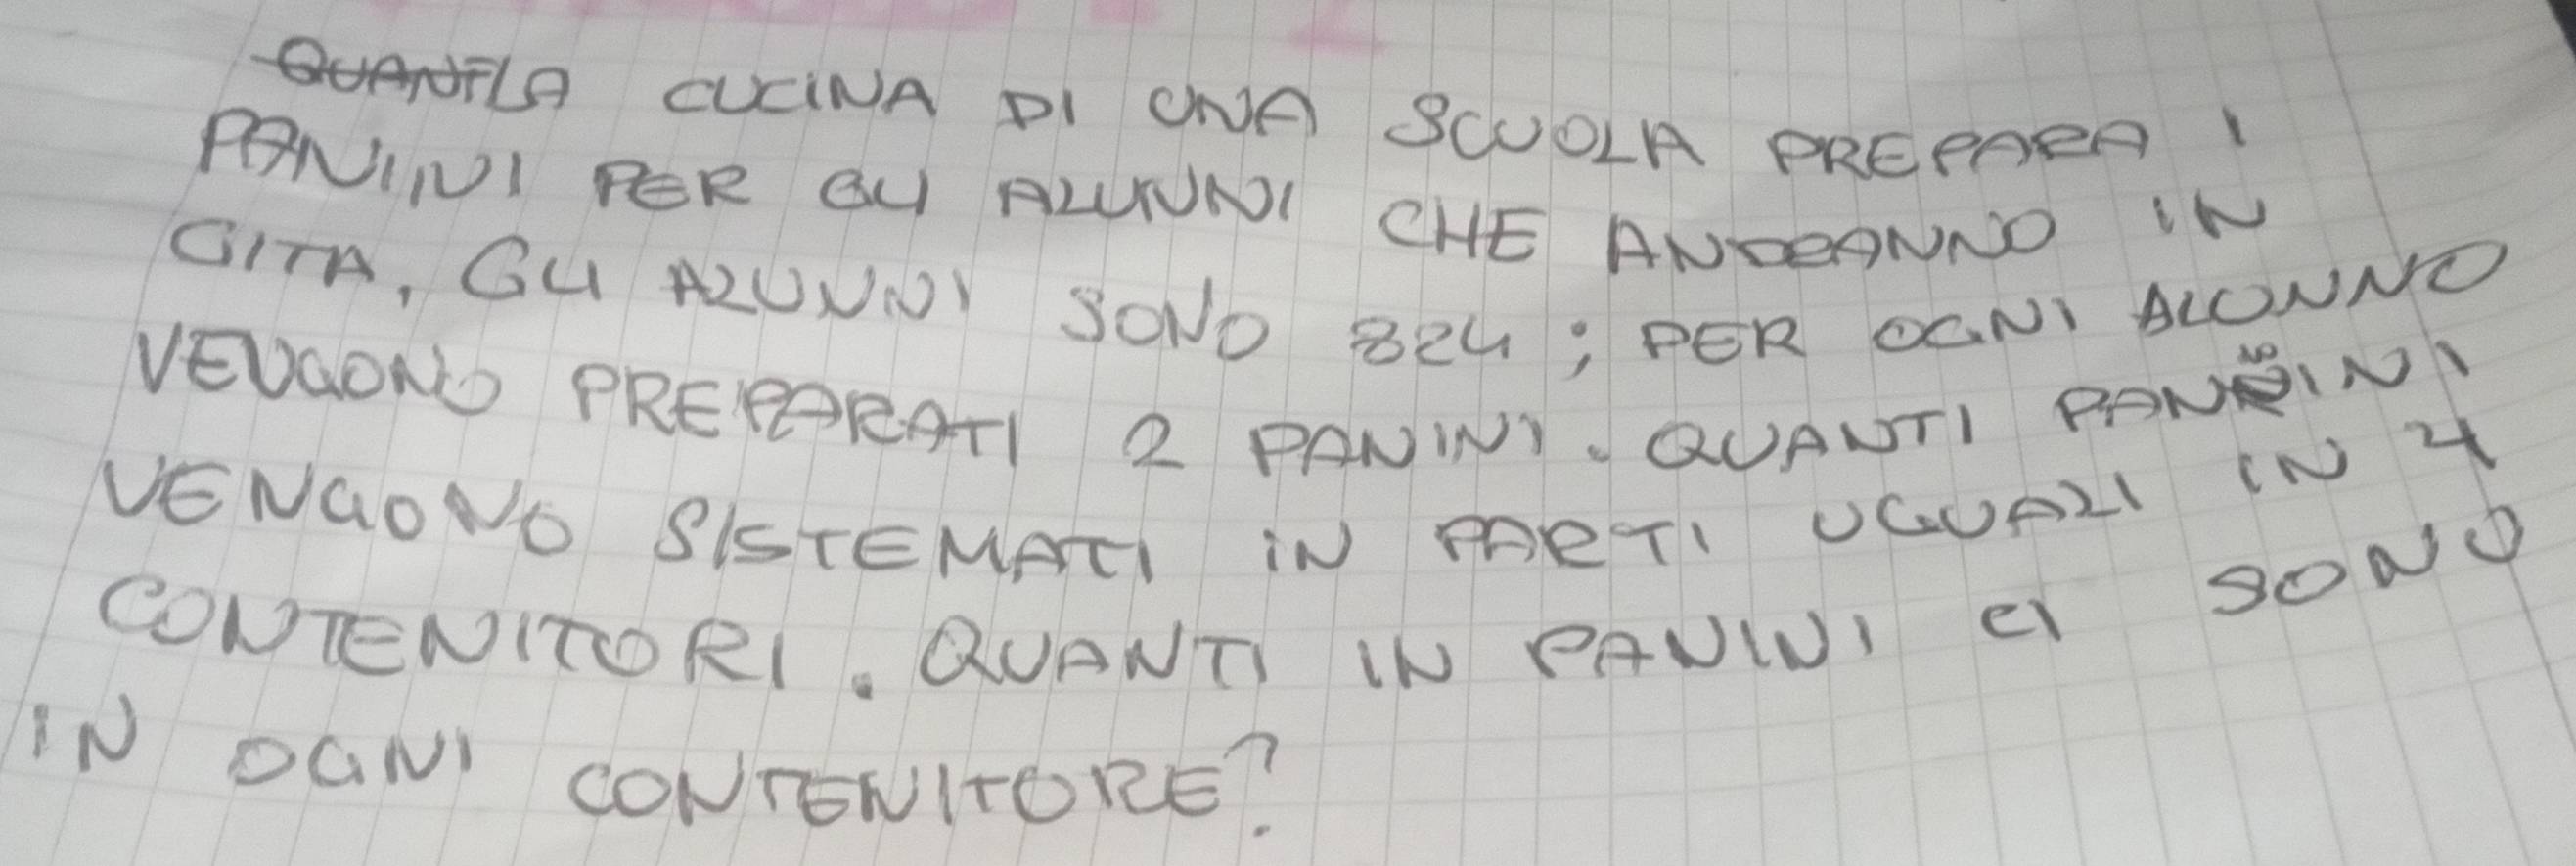 LA CUCINA DI UNA SCUOLA PREPARA I
PANINI PER GLI ALUNNI CHE ANDRANNO IN
GITA. GLI ALUNNI SONO 824; PER OGNI ALUNNO
VENGONO PREPARATI 2 PANINI. QUANTI PANINI
VENGONO SISTEMATI IN PARTI UGUALI IN 4
CONTENITORI. QUANTI IN PANINI CI SONO
IN OGNI CONTENITORE?